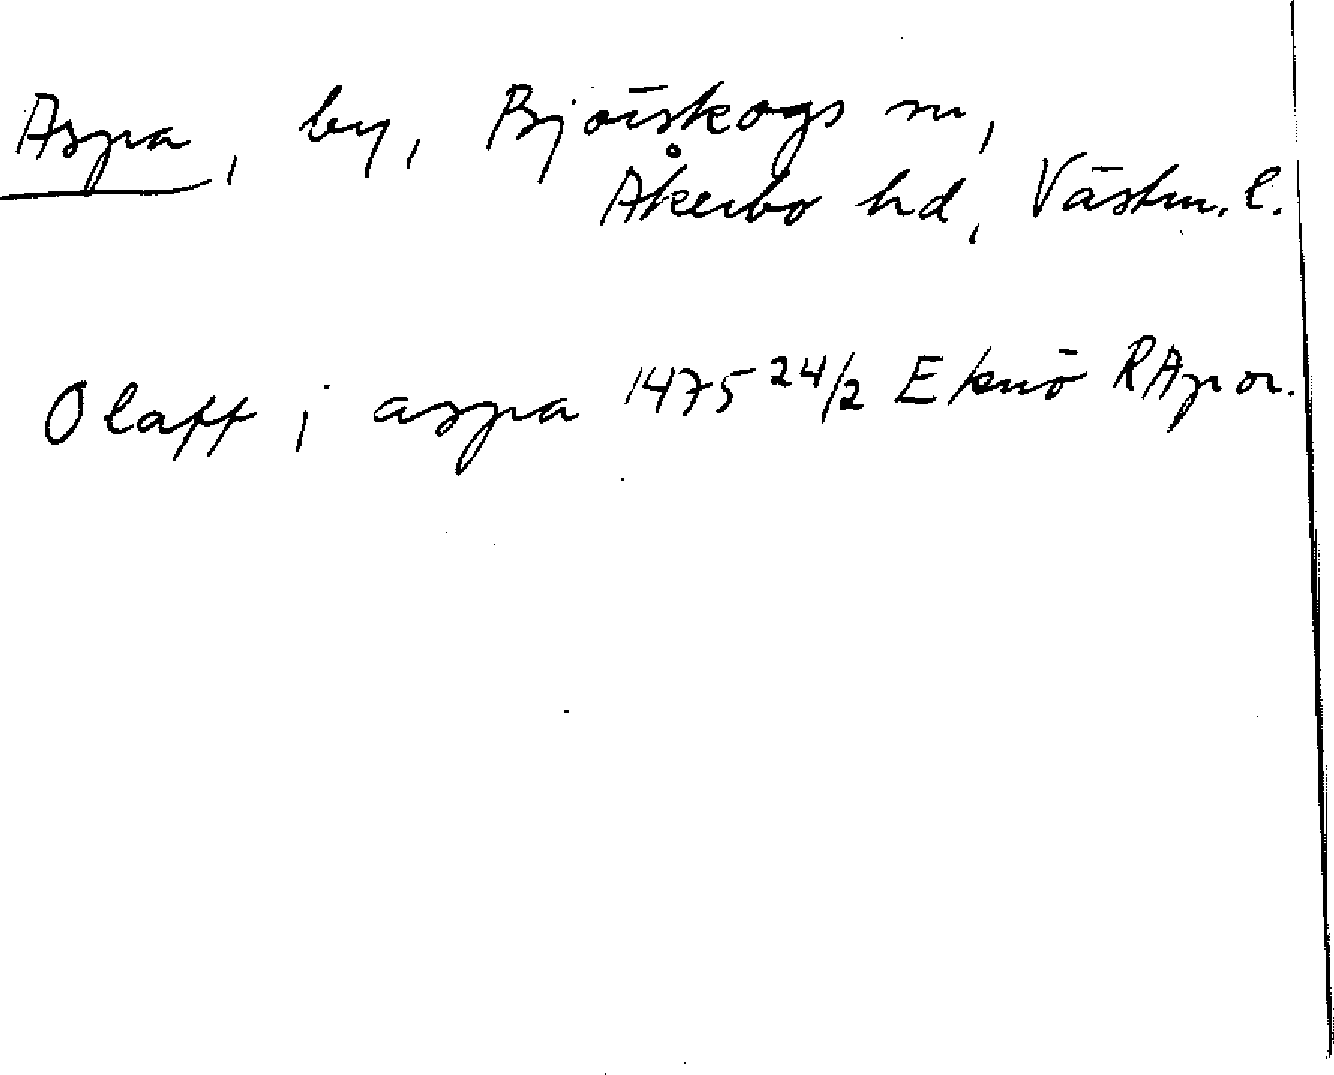 Aspa, by, Björskogs sn,
Åkerbo hd, Västm. l.
Olaff i aspa 1475 24/2 Eksnö RAp or.